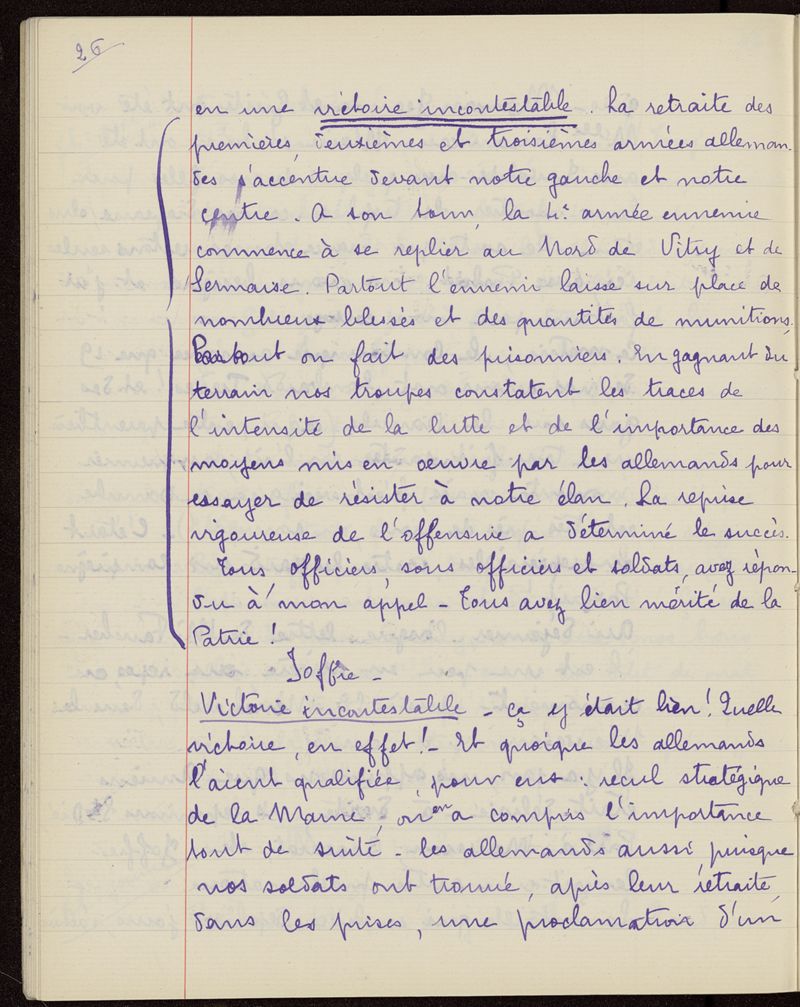 26
en une victoire incontestable. La retraite des
premières, deuxièmes et troisièmes armées alleman-
des s'accentue devant notre gauche et notre
centre. A son tour, la 4e armée ennemie
commence à se replier au Nord de Vitry et de
Sermaise. Partout l'ennemi laisse sur place de
nombreux blessés et des quantités de munitions.
Partout on fait des prisonniers. En gagnant du
terrain nos troupes constatent les traces de
l'intensité de la lutte et de l'importance des
moyens mis en oeuvre par les allemands pour
essayer de résister à notre élan. La reprise
vigoureuse de l'offensive a déterminé le succès.
Tous, officiers, sous officiers et soldats, avez répon-
du à mon appel - Tous avez bien mérité de la
Patrie!
Joffre -
Victoire incontestable - ça y était bien! Quelle
victoire, en effet! - Et quoique les allemands
l'aient qualifiée, pour eux: recul stratégique
de la Marne, on en a compris l'importance
tout de suite - les allemands aussi, puisque
nos soldats ont trouvé, après leur retraite,
dans les prises, une proclamation d'un